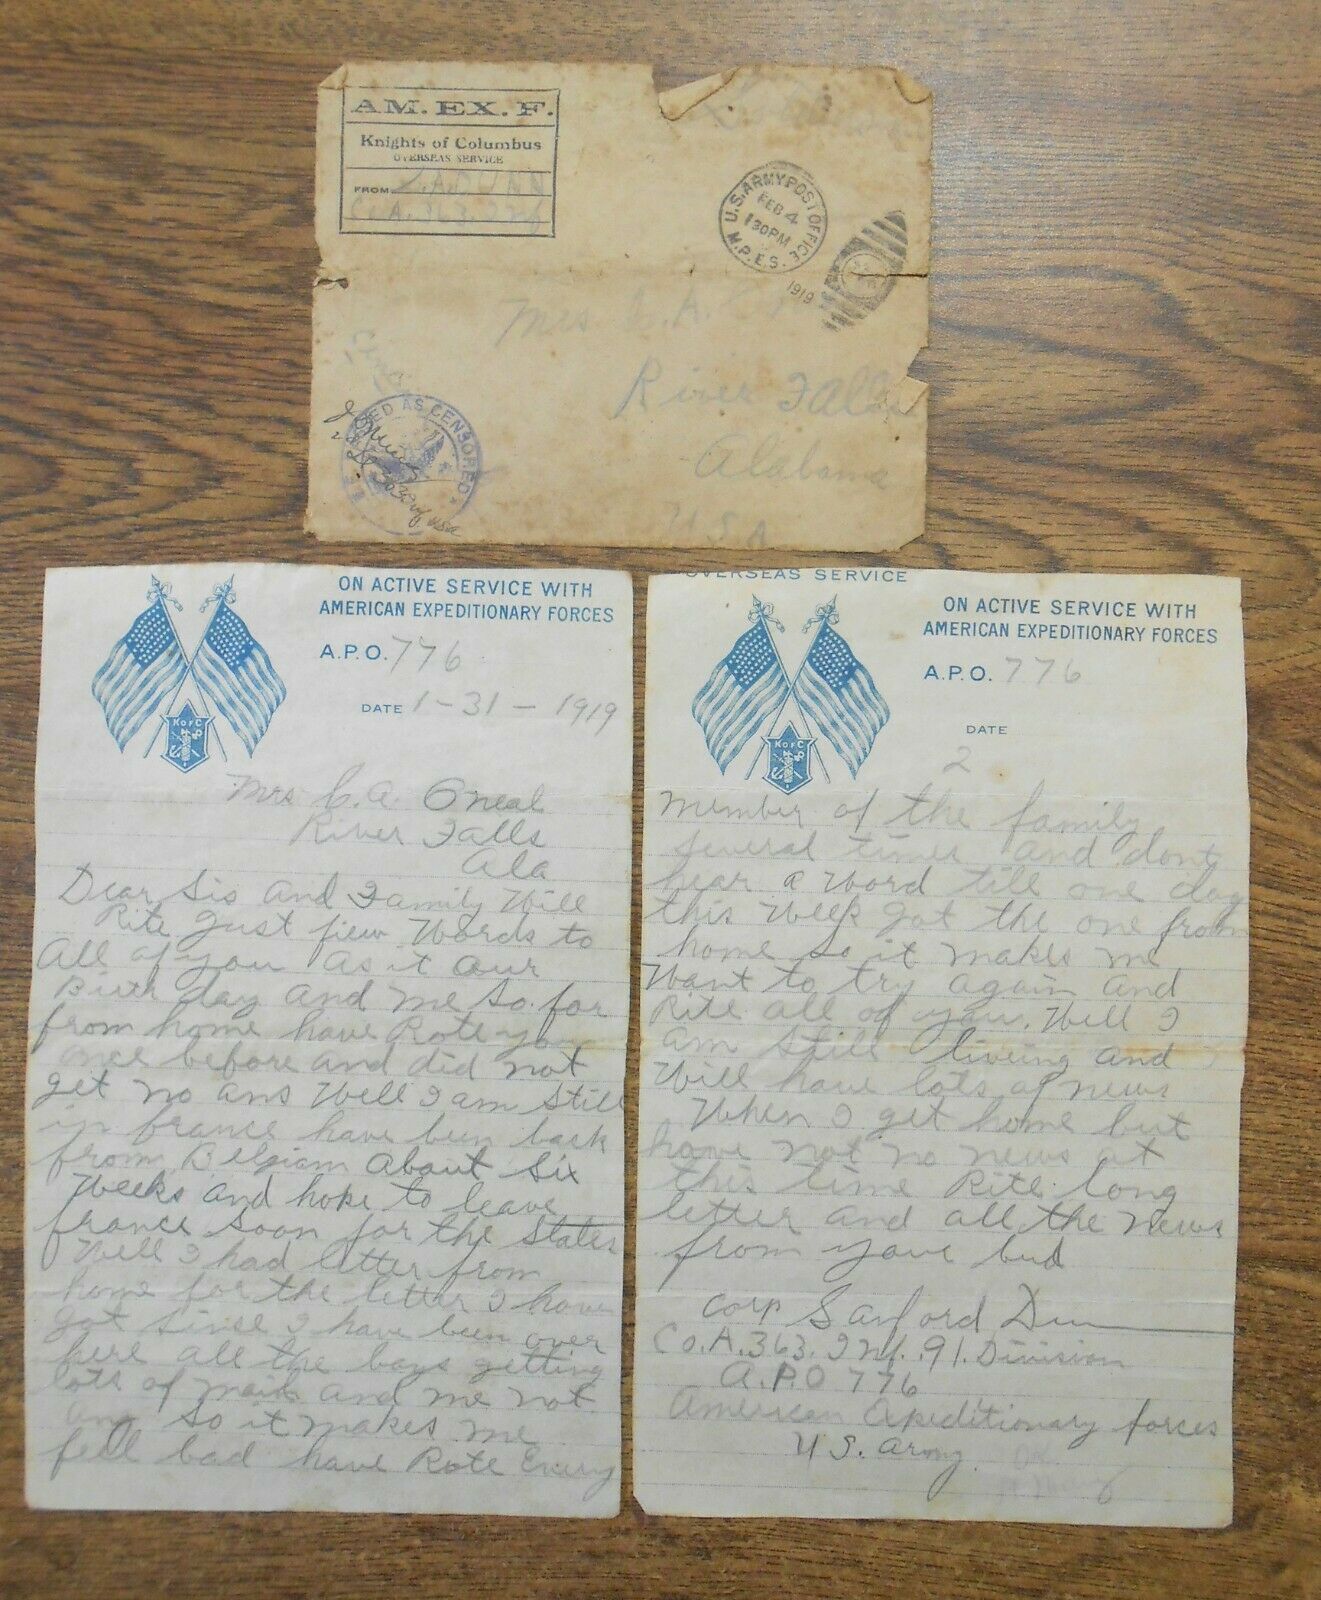 AM. EX. F.
Knights of Columbus
OVERSEAS SERVICE
FROM
Co. A. 363. Inf
U.S. ARMY POST OFFICE
M.P.E.S.
FEB 4
130PM
1919
Mrs C. A.
River Falls
Alabama
U.S.A
AS CENSORED
ON ACTIVE SERVICE WITH
AMERICAN EXPEDITIONARY FORCES
A.P.O. 776
DATE 1-31-1919
K OF C
Mrs C. A. Oneal
River Falls
Ala
Dear Sis and Family Will
Rite Just few Words to
All of you As it our
Birth day and me so far
from home have Rote you
once before and did not
get no ans Well I am still
in france have been back
from Belgiam About six
Weeks and hope to leave
france soon for the States
Well I had letter from
home for the letter I have
got sinse I have been over
here all the boys getting
lots of mail and me not
any so it makes me
fell bad have Rote Every
OVERSEAS SERVICE
ON ACTIVE SERVICE WITH
AMERICAN EXPEDITIONARY FORCES
A.P.O. 776
DATE
K OF C
2
Member of the family
several times and dont
hear a Word till one day
this Week got the one from
home so it makes me
Want to try again and
Rite all of you. Well I
am still liveing and
Will have lots of news
When I get home but
have not no news at
this time Rite long
letter and all the news
from your bud
Corp Sanford Dunn
Co. A. 363. Inf. 91. Division
A.P.O 776
American Expeditionary forces
U.S. Army